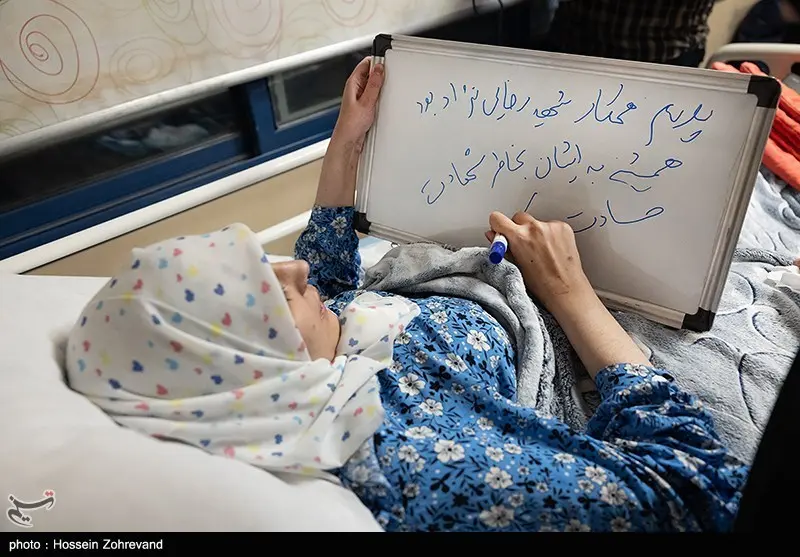 پدرم همکار شهید رضایی نژاد بود
همیشه به ایشان بخاطر شهادت
حسادت
تسنیم
photo : Hossein Zohrevand